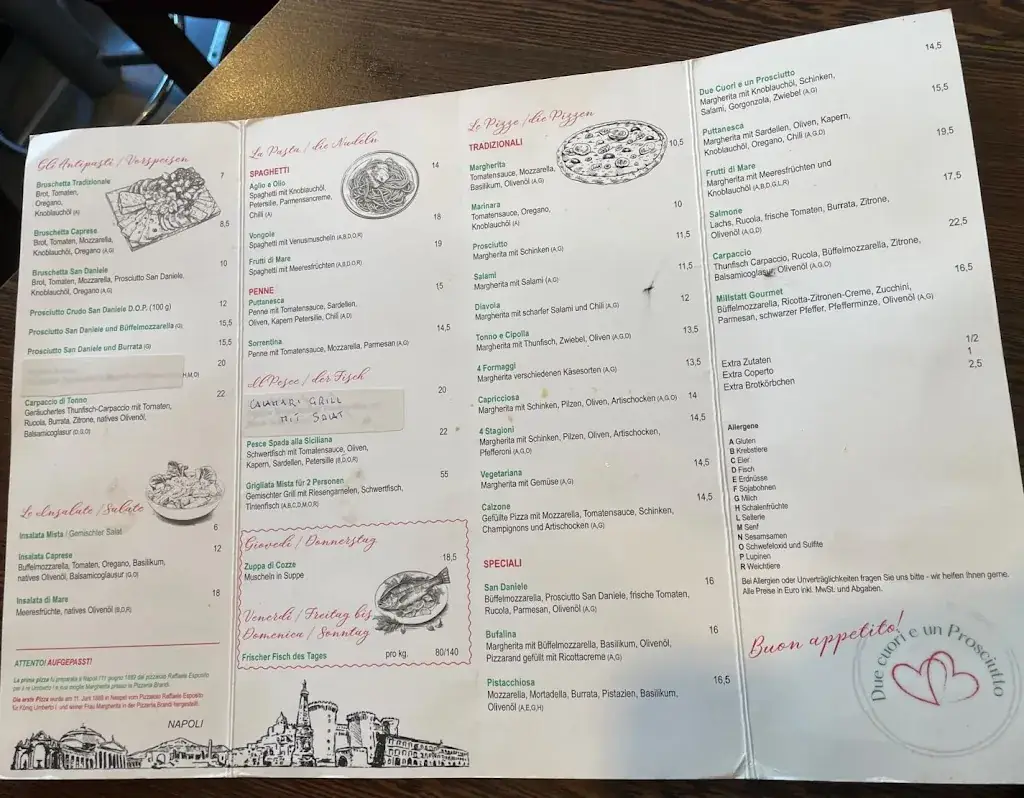 Gli Antipasti / Vorspeisen
Bruschetta Tradizionale 7
Brot, Tomaten,
Oregano,
Knoblauchöl (A)
Bruschetta Caprese 8,5
Brot, Tomaten, Mozzarella,
Knoblauchöl, Oregano (A,G)
Bruschetta San Daniele 10
Brot, Tomaten, Mozzarella, Prosciutto San Daniele,
Knoblauchöl, Oregano (A,G)
Prosciutto Crudo San Daniele D.O.P. (100 g) 12
Prosciutto San Daniele und Büffelmozzarella (G) 15,5
Prosciutto San Daniele und Burrata (G) 15,5
20
H,M,O)
Carpaccio di Tonno 22
Geräuchertes Thunfisch-Carpaccio mit Tomaten,
Rucola, Burrata, Zitrone, natives Olivenöl,
Balsamicoglasur (D,G,O)
Le Insalate / Salate
Insalata Mista / Gemischter Salat 6
Insalata Caprese 12
Büffelmozzarella, Tomaten, Oregano, Basilikum,
natives Olivenöl, Balsamicoglasur (G,O)
Insalata di Mare 18
Meeresfrüchte, natives Olivenöl (B,D,R)
ATTENTO! AUFGEPASST!
La prima pizza fu preparata a Napoli l'11 giugno 1889 dal pizzaiolo Raffaele Esposito
per il re Umberto I e sua moglie Margherita presso la Pizzeria Brandi.
Die erste Pizza wurde am 11. Juni 1889 in Neapel vom Pizzaiolo Raffaele Esposito
für König Umberto I. und seiner Frau Margherita in der Pizzeria Brandi hergestellt.
NAPOLI
La Pasta / die Nudeln
SPAGHETTI
Aglio e Olio 14
Spaghetti mit Knoblauchöl,
Petersilie, Parmesancreme,
Chili (A)
Vongole 18
Spaghetti mit Venusmuscheln (A,B,D,O,R)
Frutti di Mare 19
Spaghetti mit Meeresfrüchten (A,B,D,O,R)
PENNE
Puttanesca 15
Penne mit Tomatensauce, Sardellen,
Oliven, Kapern Petersilie, Chili (A,D)
Sorrentina 14,5
Penne mit Tomatensauce, Mozzarella, Parmesan (A,G)
Il Pesce / der Fisch
CALAMARI GRILL 20
MIT SALAT
Pesce Spada alla Siciliana 22
Schwertfisch mit Tomatensauce, Oliven,
Kapern, Sardellen, Petersilie (B,D,O,R)
Grigliata Mista für 2 Personen 55
Gemischter Grill mit Riesengarnelen, Schwertfisch,
Tintenfisch (A,B,C,D,M,O,R)
Giovedi / Donnerstag
Zuppa di Cozze 18,5
Muscheln in Suppe
Venerdi / Freitag bis
Domenica / Sonntag
Frischer Fisch des Tages pro kg. 80/140
Le Pizze / die Pizzen
TRADIZIONALI
Margherita 10,5
Tomatensauce, Mozzarella,
Basilikum, Olivenöl (A,G)
Marinara 10
Tomatensauce, Oregano,
Knoblauchöl (A)
Prosciutto 11,5
Margherita mit Schinken (A,G)
Salami 11,5
Margherita mit Salami (A,G)
Diavola 12
Margherita mit scharfer Salami und Chili (A,G)
Tonno e Cipolla 13,5
Margherita mit Thunfisch, Zwiebel, Oliven (A,G,D)
4 Formaggi 13,5
Margherita verschiedenen Käsesorten (A,G)
Capricciosa 14
Margherita mit Schinken, Pilzen, Oliven, Artischocken (A,G,O)
4 Stagioni 14,5
Margherita mit Schinken, Pilzen, Oliven, Artischocken,
Pfefferoni (A,G,O)
Vegetariana 14,5
Margherita mit Gemüse (A,G)
Calzone 14,5
Gefüllte Pizza mit Mozzarella, Tomatensauce, Schinken,
Champignons und Artischocken (A,G)
SPECIALI
San Daniele 16
Büffelmozzarella, Prosciutto San Daniele, frische Tomaten,
Rucola, Parmesan, Olivenöl (A,G)
Bufalina 16
Margherita mit Büffelmozzarella, Basilikum, Olivenöl,
Pizzarand gefüllt mit Ricottacreme (A,G)
Pistacchiosa 16,5
Mozzarella, Mortadella, Burrata, Pistazien, Basilikum,
Olivenöl (A,E,G,H)
Due Cuori e un Prosciutto 14,5
Margherita mit Knoblauchöl, Schinken,
Salami, Gorgonzola, Zwiebel (A,G)
Puttanesca 15,5
Margherita mit Sardellen, Oliven, Kapern,
Knoblauchöl, Oregano, Chili (A,G,D)
Frutti di Mare 19,5
Margherita mit Meeresfrüchten und
Knoblauchöl (A,B,D,G,L,R)
Salmone 17,5
Lachs, Rucola, frische Tomaten, Burrata, Zitrone,
Olivenöl (A,G,D)
Carpaccio 22,5
Thunfisch Carpaccio, Rucola, Büffelmozzarella, Zitrone,
Balsamicoglasur, Olivenöl (A,G,O)
Millstatt Gourmet 16,5
Büffelmozzarella, Ricotta-Zitronen-Creme, Zucchini,
Parmesan, schwarzer Pfeffer, Pfefferminze, Olivenöl (A,G)
Extra Zutaten 1/2
Extra Coperto 1
Extra Brotkörbchen 2,5
Allergene
A Gluten
B Krebstiere
C Eier
D Fisch
E Erdnüsse
F Sojabohnen
G Milch
H Schalenfrüchte
L Sellerie
M Senf
N Sesamsamen
O Schwefeloxid und Sulfite
P Lupinen
R Weichtiere
Bei Allergien oder Unverträglichkeiten fragen Sie uns bitte - wir helfen Ihnen gerne.
Alle Preise in Euro inkl. MwSt. und Abgaben.
Buon appetito!
Due cuori e un Prosciutto